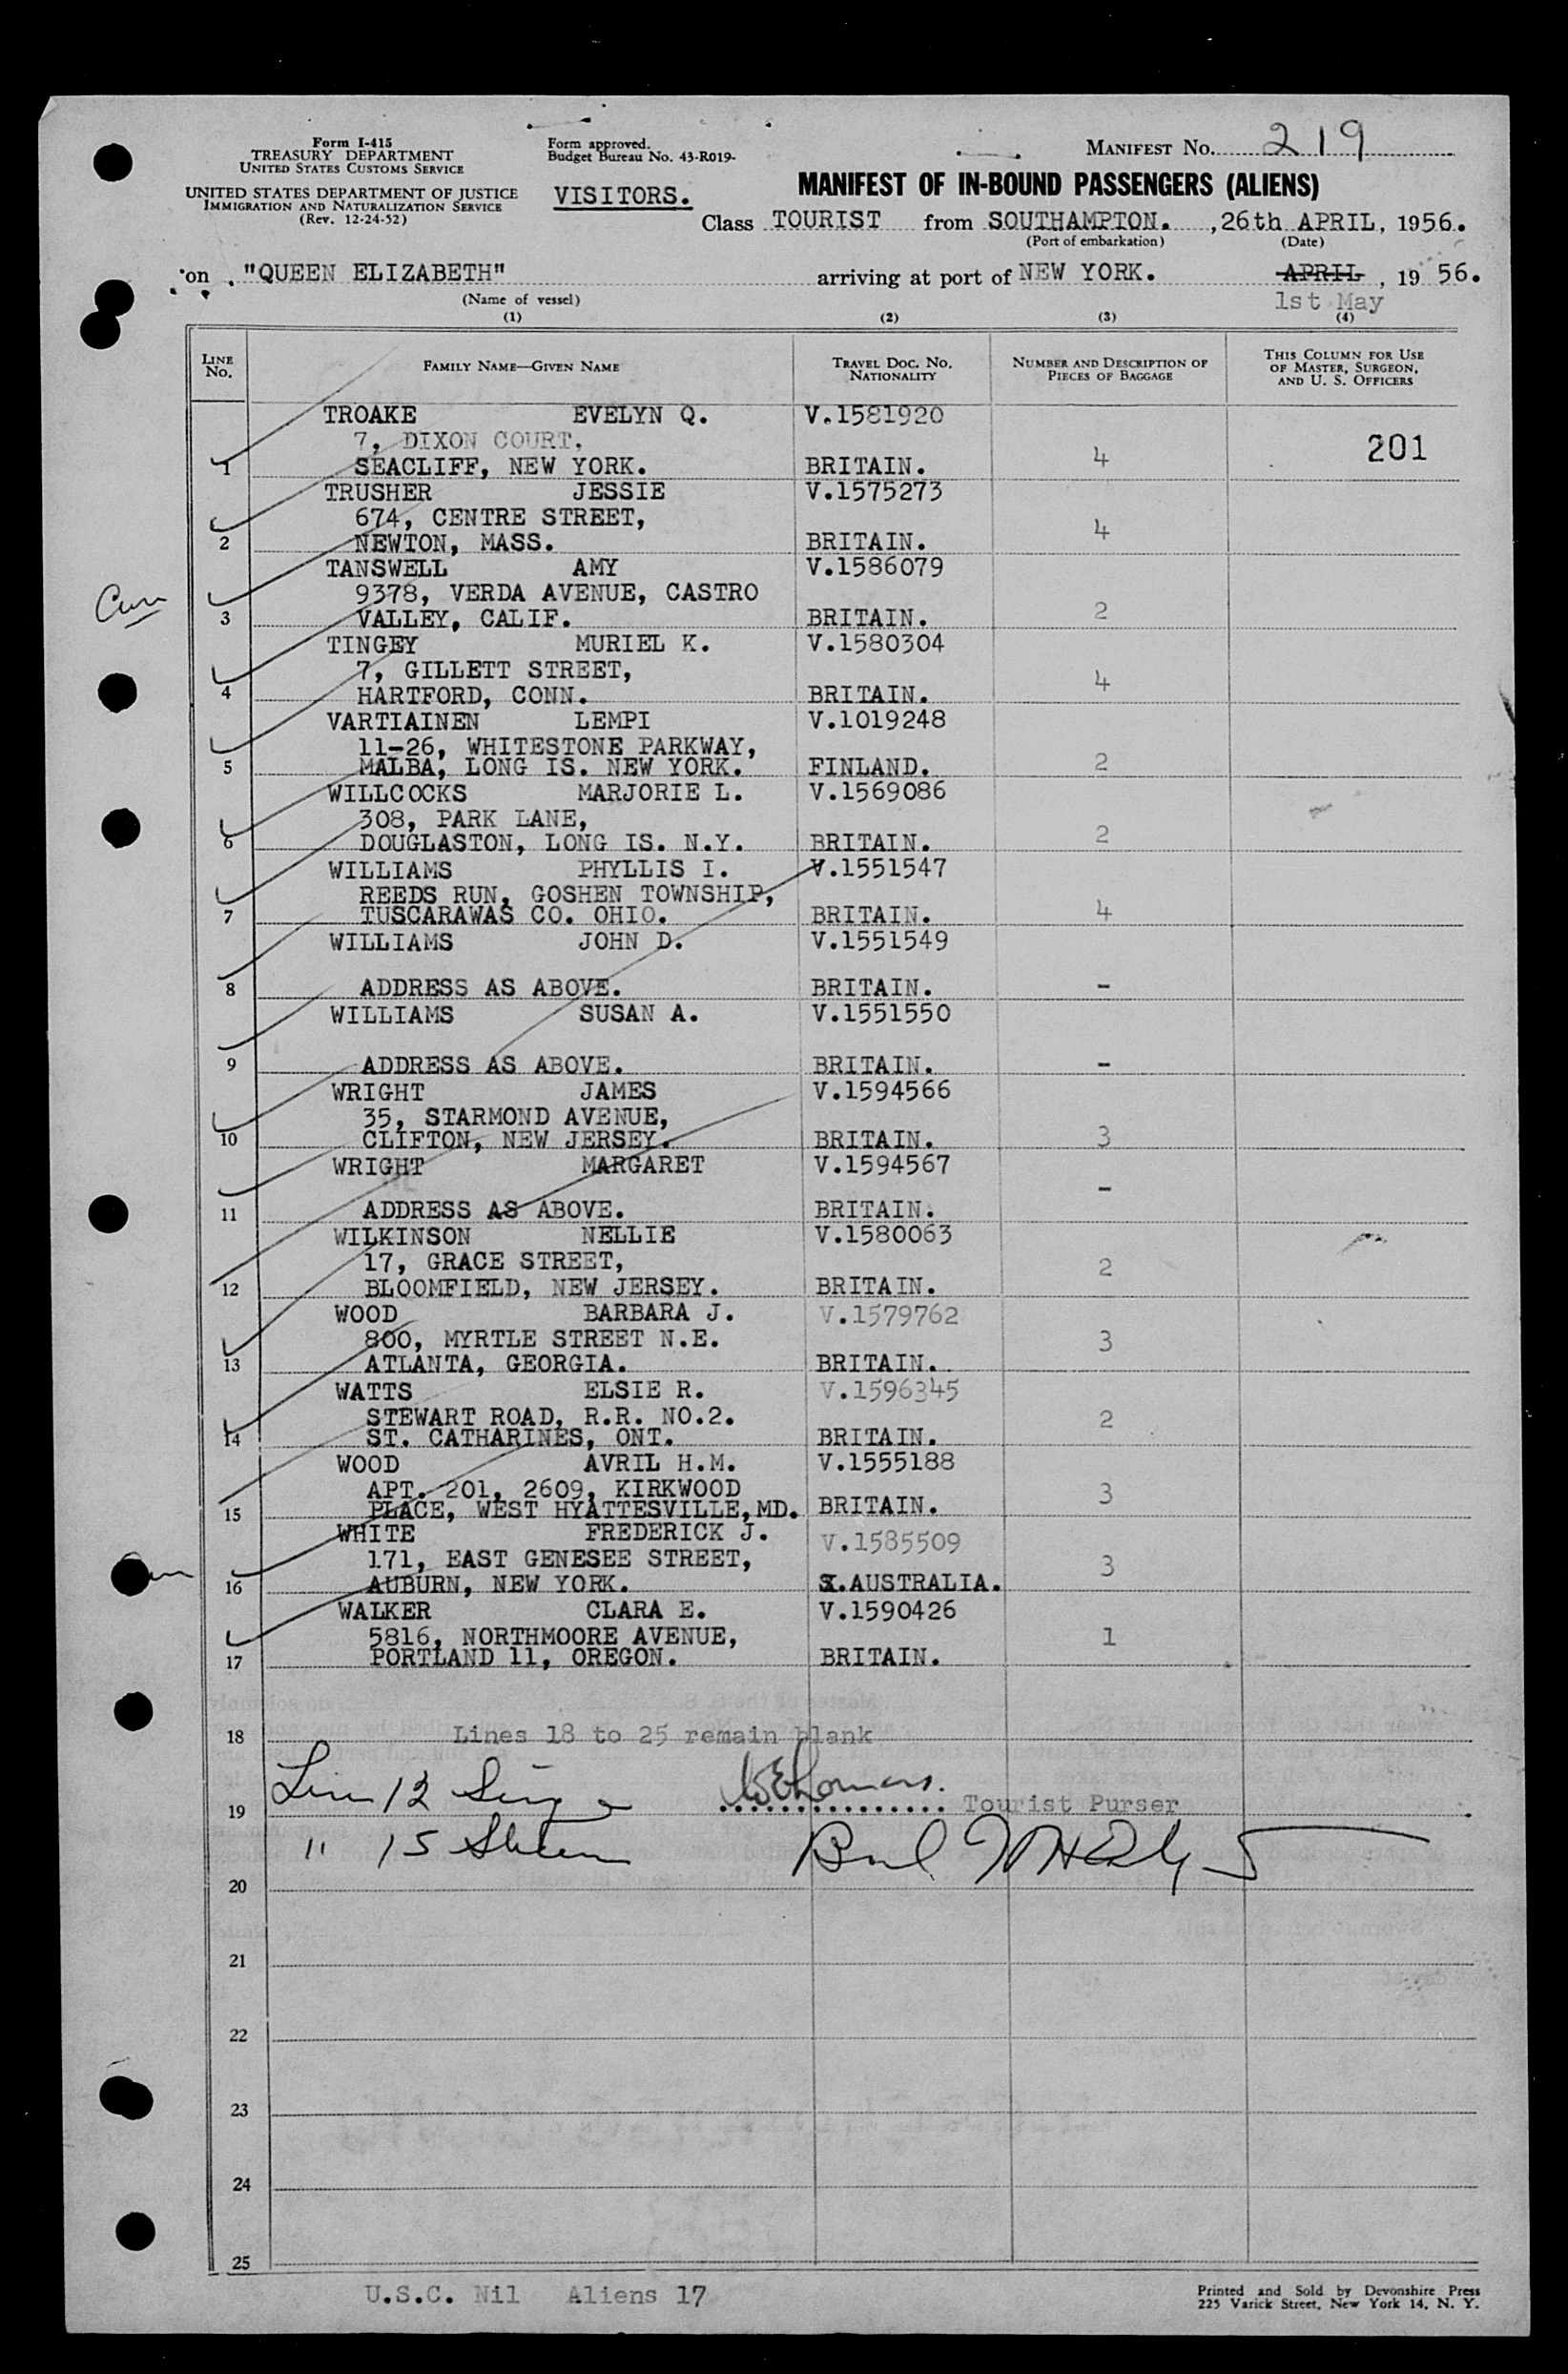 Form I-415
TREASURY DEPARTMENT
UNITED STATES CUSTOMS SERVICE
UNITED STATES DEPARTMENT OF JUSTICE
IMMIGRATION AND NATURALIZATION SERVICE
(Rev. 12-24-52)
Form approved.
Budget Bureau No. 43-R019-
VISITORS.
MANIFEST NO. 219
MANIFEST OF IN-BOUND PASSENGERS (ALIENS)
Class TOURIST from SOUTHAMPTON. , 26th APRIL, 1956.
(Port of embarkation) (Date)
on "QUEEN ELIZABETH" arriving at port of NEW YORK. APRIL , 19 56.
(Name of vessel) 1st May
(1) (2) (3) (4)
LINE NO. FAMILY NAME—GIVEN NAME TRAVEL DOC. NO. NATIONALITY NUMBER AND DESCRIPTION OF PIECES OF BAGGAGE THIS COLUMN FOR USE OF MASTER, SURGEON, AND U. S. OFFICERS
TROAKE EVELYN Q. V.1581920
7, DIXON COURT, 201
1 SEACLIFF, NEW YORK. BRITAIN. 4
TRUSHER JESSIE V.1575273
674, CENTRE STREET,
2 NEWTON, MASS. BRITAIN. 4
TANSWELL AMY V.1586079
9378, VERDA AVENUE, CASTRO
3 VALLEY, CALIF. BRITAIN. 2
TINGEY MURIEL K. V.1580304
7, GILLETT STREET,
4 HARTFORD, CONN. BRITAIN. 4
VARTIAINEN LEMPI V.1019248
11-26, WHITESTONE PARKWAY,
5 MALBA, LONG IS. NEW YORK. FINLAND. 2
WILLCOCKS MARJORIE L. V.1569086
308, PARK LANE,
6 DOUGLASTON, LONG IS. N.Y. BRITAIN. 2
WILLIAMS PHYLLIS I. V.1551547
REEDS RUN, GOSHEN TOWNSHIP,
7 TUSCARAWAS CO. OHIO. BRITAIN. 4
WILLIAMS JOHN D. V.1551549
8 ADDRESS AS ABOVE. BRITAIN. -
WILLIAMS SUSAN A. V.1551550
9 ADDRESS AS ABOVE. BRITAIN. -
WRIGHT JAMES V.1594566
35, STARMOND AVENUE,
10 CLIFTON, NEW JERSEY. BRITAIN. 3
WRIGHT MARGARET V.1594567
11 ADDRESS AS ABOVE. BRITAIN. -
WILKINSON NELLIE V.1580063
17, GRACE STREET,
12 BLOOMFIELD, NEW JERSEY. BRITAIN. 2
WOOD BARBARA J. V.1579762
800, MYRTLE STREET N.E.
13 ATLANTA, GEORGIA. BRITAIN. 3
WATTS ELSIE R. V.1596345
STEWART ROAD, R.R. NO.2.
14 ST. CATHARINES, ONT. BRITAIN. 2
WOOD AVRIL H.M. V.1555188
APT. 201, 2609, KIRKWOOD
15 PLACE, WEST HYATTESVILLE, MD. BRITAIN. 3
WHITE FREDERICK J. V.1585509
171, EAST GENESEE STREET,
16 AUBURN, NEW YORK. AUSTRALIA. 3
WALKER CLARA E. V.1590426
5816, NORTHMOORE AVENUE,
17 PORTLAND 11, OREGON. BRITAIN. 1
18 Lines 18 to 25 remain blank
Line 12
19 Tourist Purser
" 15
20
21
22
23
24
25
U.S.C. Nil Aliens 17
Printed and Sold by Devonshire Press
225 Varick Street, New York 14, N. Y.